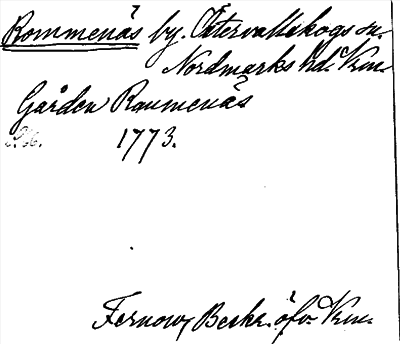 Rommenäs by. Östervallskogs sn.
Nordmarks hd. Vrm.
Gården Raumenäs
1773.
Fernow, Beskr. öfv. Vrm.